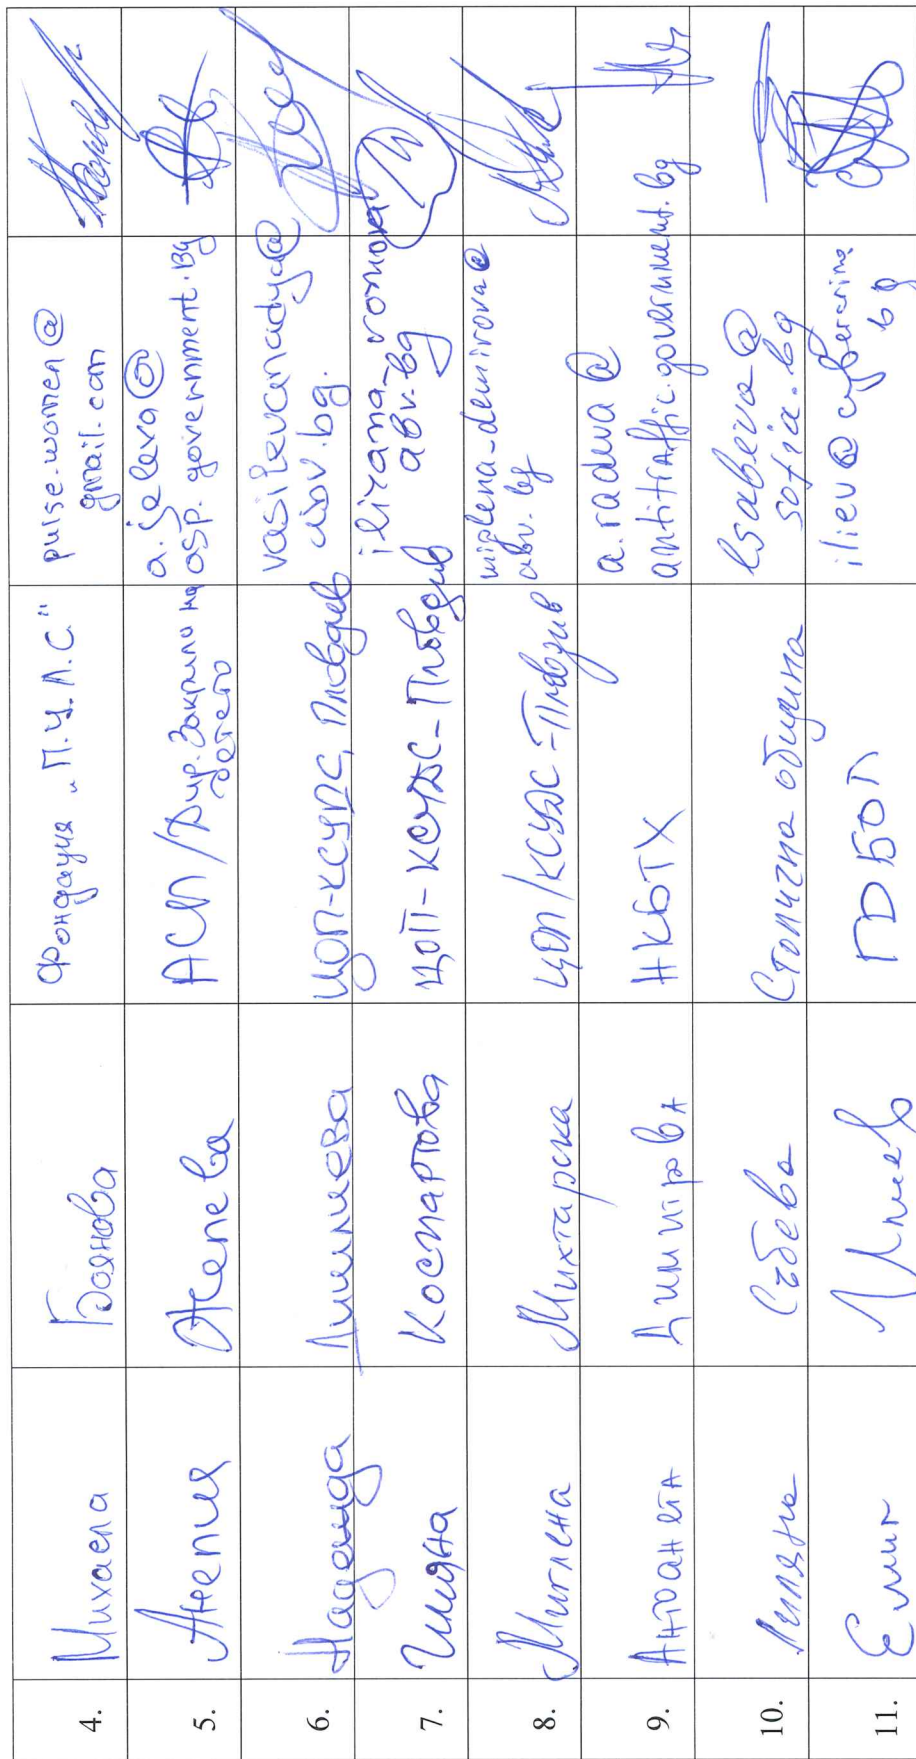 4. Михаела Боянова Фондация „П.У.Л.С." pulse.women@
gmail.com
5. Анелия Желева АСП/Дир. Закрила на
детето a.jeleva@
asp.government.bg
6. Надежда ЦОП-КСУДС, Пловдив
7. Илияна ЦОП-КСУДС-Пловдив
abv.bg
8. Миглена Михтарска ЦОП/КСУДС-Пловдив miglena-demirova@
abv.bg
9. Антоанета Димитрова НКБТХ a.radeva@
antitraffic.government.bg
10. Лиляна Събева Столична община lsabeva@
sofia.bg
11. Емил Илиев ГДБОП iliev@cybercrime.
bg